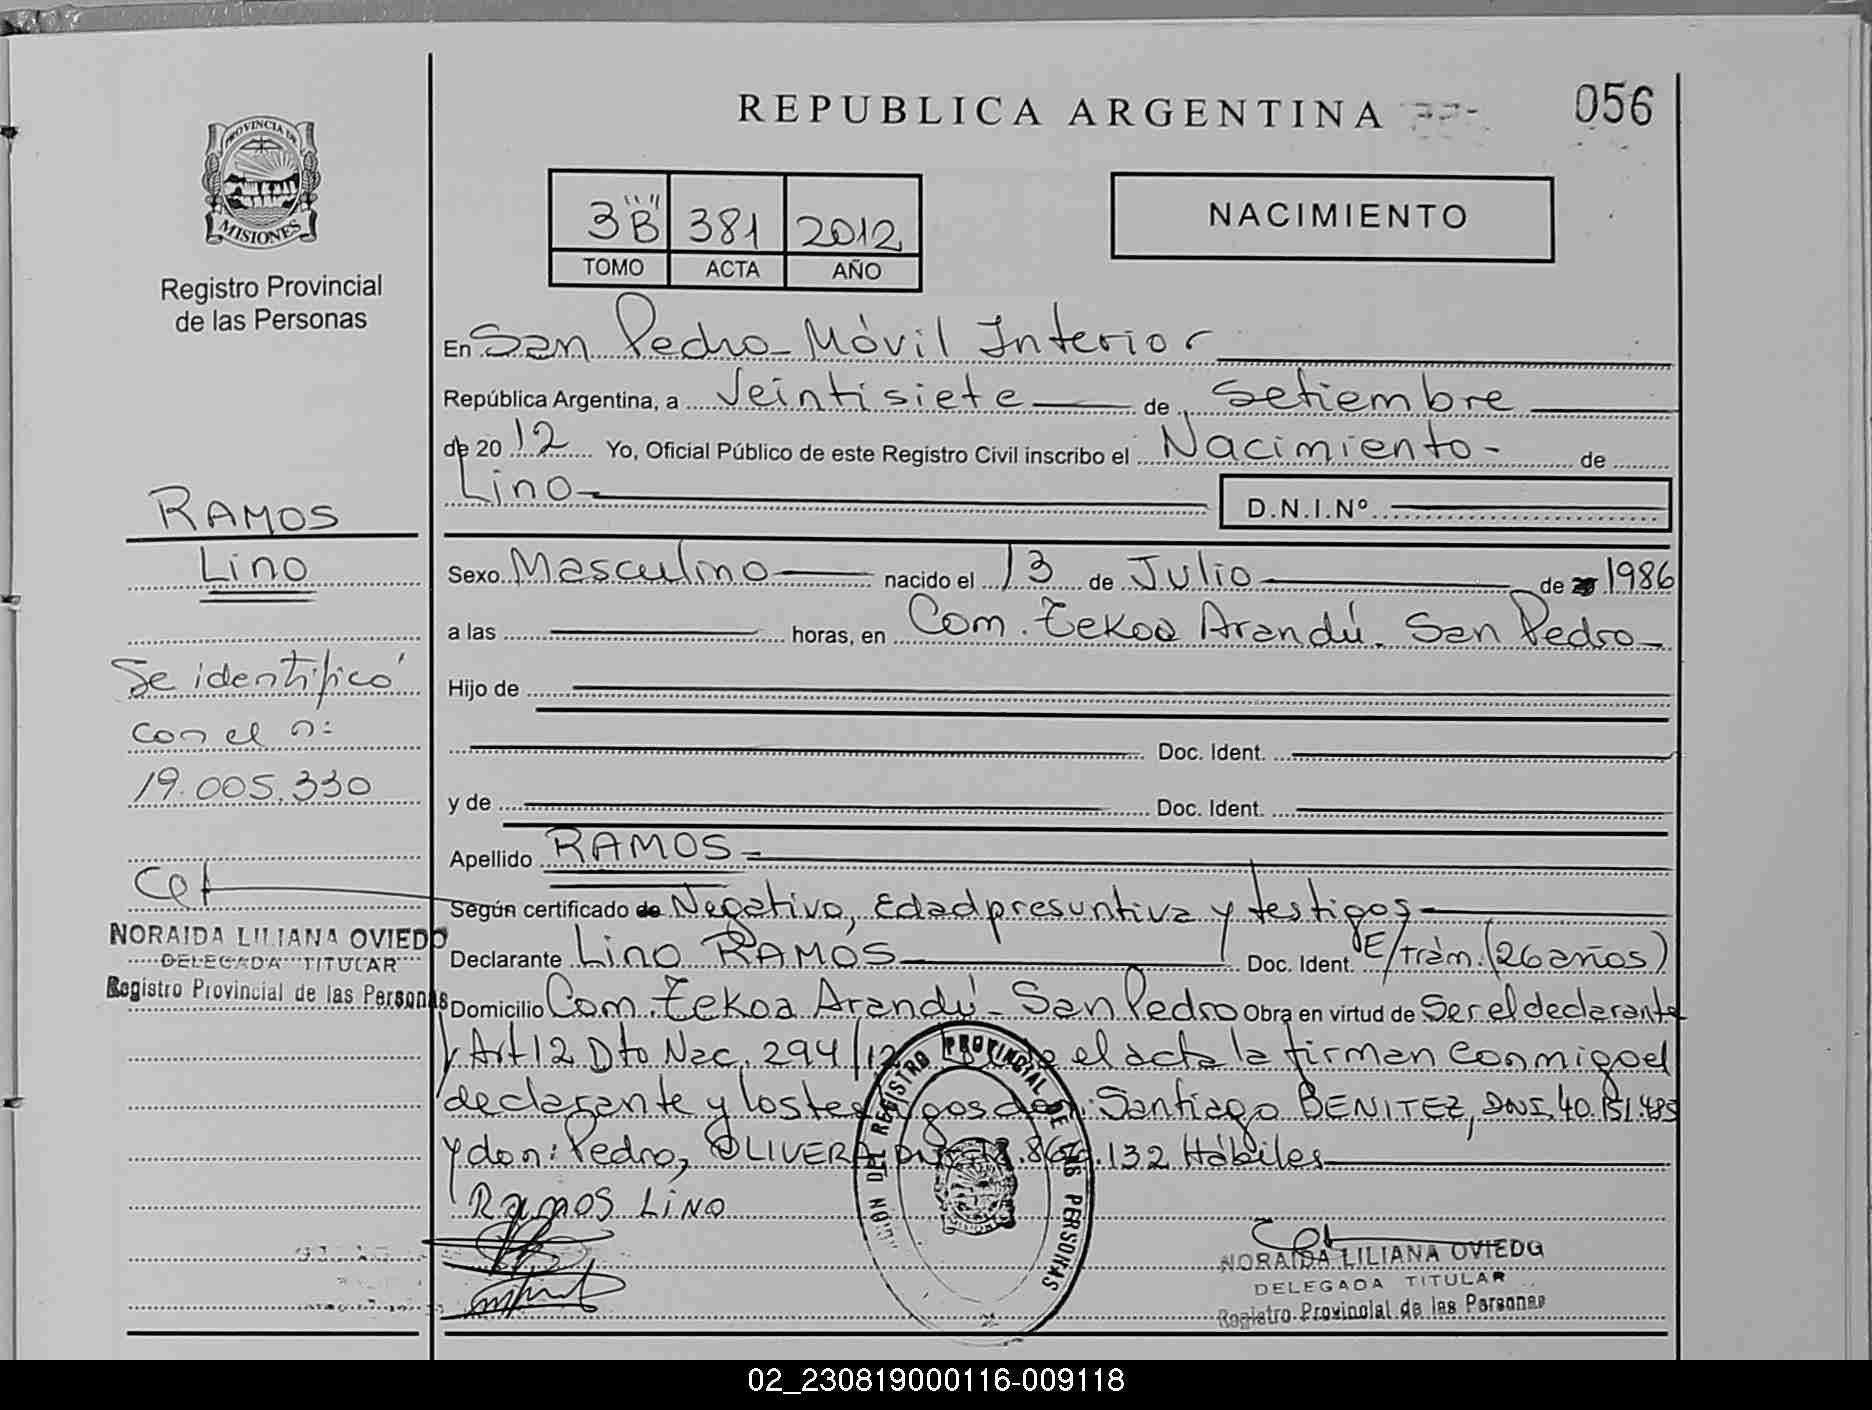 REPUBLICA ARGENTINA
056
PROVINCIA DE
MISIONES
Registro Provincial
de las Personas
3"B" 381 2012
TOMO ACTA AÑO
NACIMIENTO
En San Pedro - Móvil Interior
República Argentina, a Veintisiete de Setiembre
de 20 12 Yo, Oficial Público de este Registro Civil inscribo el Nacimiento - de
Lino
D.N.I.Nº
RAMOS
Lino
Se identificó
con el n:
19.005.330
NORAIDA LILIANA OVIEDO
DELEGADA TITULAR
Registro Provincial de las Personas
Sexo Masculino nacido el 13 de Julio de 1986
a las horas, en Com. Tekoa Arandú - San Pedro -
Hijo de
Doc. Ident.
y de Doc. Ident.
Apellido RAMOS
Según certificado de Negativo, Edad presuntiva y testigos
Declarante Lino RAMOS Doc. Ident. E/trám. (26 años)
Domicilio Com. Tekoa Arandú - San Pedro Obra en virtud de Ser el declarante
y Art 12 Dto Nac. 294/12 el acta la firman conmigo el
declarante y los testigos don: Santiago BENITEZ, DNI. 40.151.485
y don: Pedro, OLIVERA .132 Hábiles
Ramos Lino
DEL REGISTRO PROVINCIAL DE LAS PERSONAS
NORAIDA LILIANA OVIEDO
DELEGADA TITULAR
Registro Provincial de las Personas
02_230819000116-009118